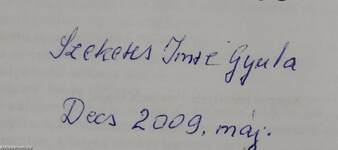 Szekeres Imre Gyula
Decs 2009. máj.